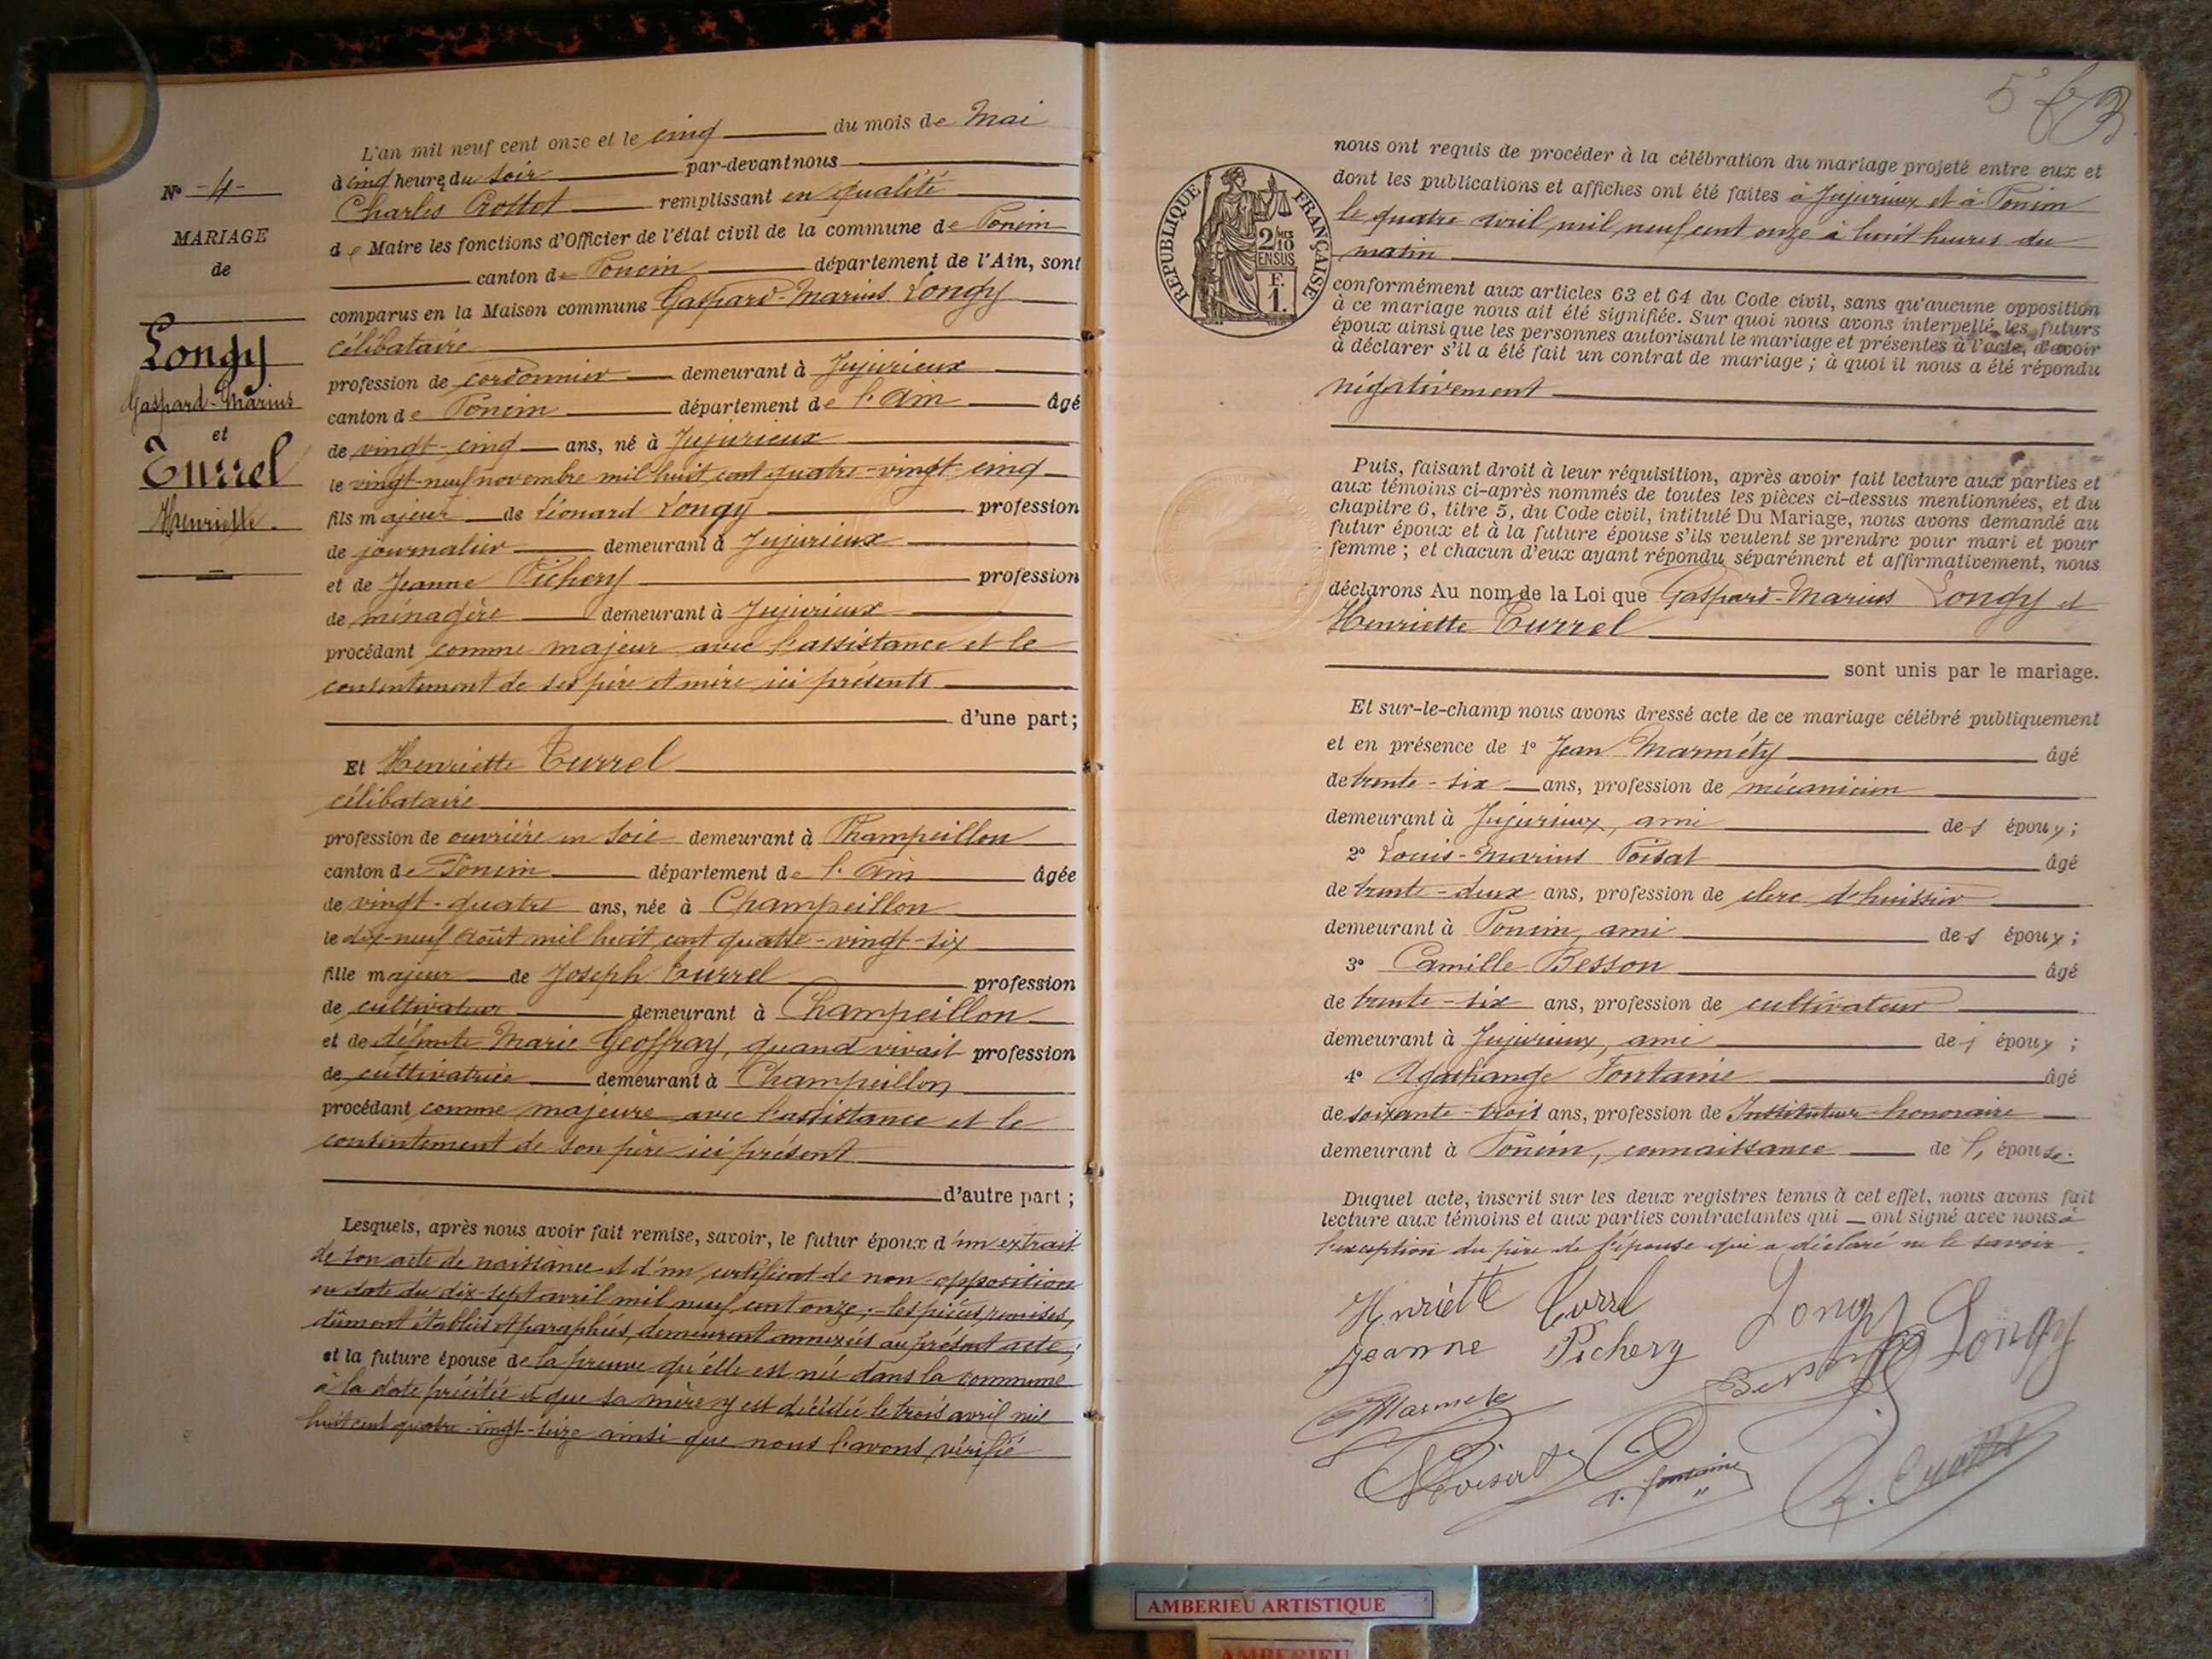 L'an mil neuf cent onze et le cinq du mois de Mai
à cinq heures du soir par-devant nous
Charles Crottet remplissant en qualité
de Maire les fonctions d'Officier de l'état civil de la commune de Poncin
canton de Poncin département de l'Ain, sont
comparus en la Maison commune Gaspard-Marius Longy
célibataire
profession de cordonnier demeurant à Jujurieux
canton de Poncin département de l'Ain âgé
de vingt-cinq ans, né à Jujurieux
le vingt-neuf novembre mil huit cent quatre-vingt-cinq
fils majeur de Léonard Longy profession
de journalier demeurant à Jujurieux
et de Jeanne Pichery profession
de ménagère demeurant à Jujurieux
procédant comme majeur avec l'assistance et le
consentement de ses père et mère ici présents
d'une part;
Et Henriette Turrel
célibataire
profession de ouvrière en soie demeurant à Champeillon
canton de Poncin département de l'Ain âgée
de vingt-quatre ans, née à Champeillon
le dix-neuf Août mil huit cent quatre-vingt-six
fille majeur de Joseph Turrel profession
de cultivateur demeurant à Champeillon
et de défunte Marie Geoffray, quand vivait profession
de cultivatrice demeurant à Champeillon
procédant comme majeure avec l'assistance et le
consentement de son père ici présent
d'autre part;
Lesquels, après nous avoir fait remise, savoir, le futur époux d'un extrait
de son acte de naissance et d'un certificat de non opposition
en date du dix-sept avril mil neuf cent onze; les pièces remises,
dûment établies et paraphées, demeurent annexées au présent acte;
et la future épouse de la preuve qu'elle est née dans la commune
à la date précitée et que sa mère y est décédée le trois avril mil
huit cent quatre-vingt-seize ainsi que nous l'avons vérifié
N° -4-
MARIAGE
de
Longy
Gaspard-Marius
et
Turrel
Henriette.
5
nous ont requis de procéder à la célébration du mariage projeté entre eux et
dont les publications et affiches ont été faites à Jujurieux et à Poncin
le quatre avril mil neuf cent onze à huit heures du
matin
RÉPUBLIQUE FRANÇAISE
2/10
EN SUS
F.
1.
conformément aux articles 63 et 64 du Code civil, sans qu'aucune opposition
à ce mariage nous ait été signifiée. Sur quoi nous avons interpellé les futurs
époux ainsi que les personnes autorisant le mariage et présentes à l'acte, d'avoir
à déclarer s'il a été fait un contrat de mariage; à quoi il nous a été répondu
négativement
Puis, faisant droit à leur réquisition, après avoir fait lecture aux parties et
aux témoins ci-après nommés de toutes les pièces ci-dessus mentionnées, et du
chapitre 6, titre 5, du Code civil, intitulé Du Mariage, nous avons demandé au
futur époux et à la future épouse s'ils veulent se prendre pour mari et pour
femme; et chacun d'eux ayant répondu séparément et affirmativement, nous
déclarons Au nom de la Loi que Gaspard-Marius Longy et
Henriette Turrel
sont unis par le mariage.
Et sur-le-champ nous avons dressé acte de ce mariage célébré publiquement
et en présence de 1° Jean Marméty âgé
de trente-six ans, profession de mécanicien
demeurant à Jujurieux, ami des époux;
2° Louis-Marius Poisat âgé
de trente-deux ans, profession de clerc d'huissier
demeurant à Poncin, ami des époux;
3° Camille Besson âgé
de trente-six ans, profession de cultivateur
demeurant à Jujurieux, ami des époux;
4° Agathange Fontaine âgé
de soixante-trois ans, profession de Instituteur honoraire
demeurant à Poncin, connaissance de l'épouse.
Duquel acte, inscrit sur les deux registres tenus à cet effet, nous avons fait
lecture aux témoins et aux parties contractantes qui ont signé avec nous à
l'exception du père de l'épouse qui a déclaré ne le savoir.
Henriette Turrel Longy Longy
Jeanne Pichery Besson
Marmety
Poisat A. fontaine C. Crottet
AMBERIEU ARTISTIQUE
AMBERIEU